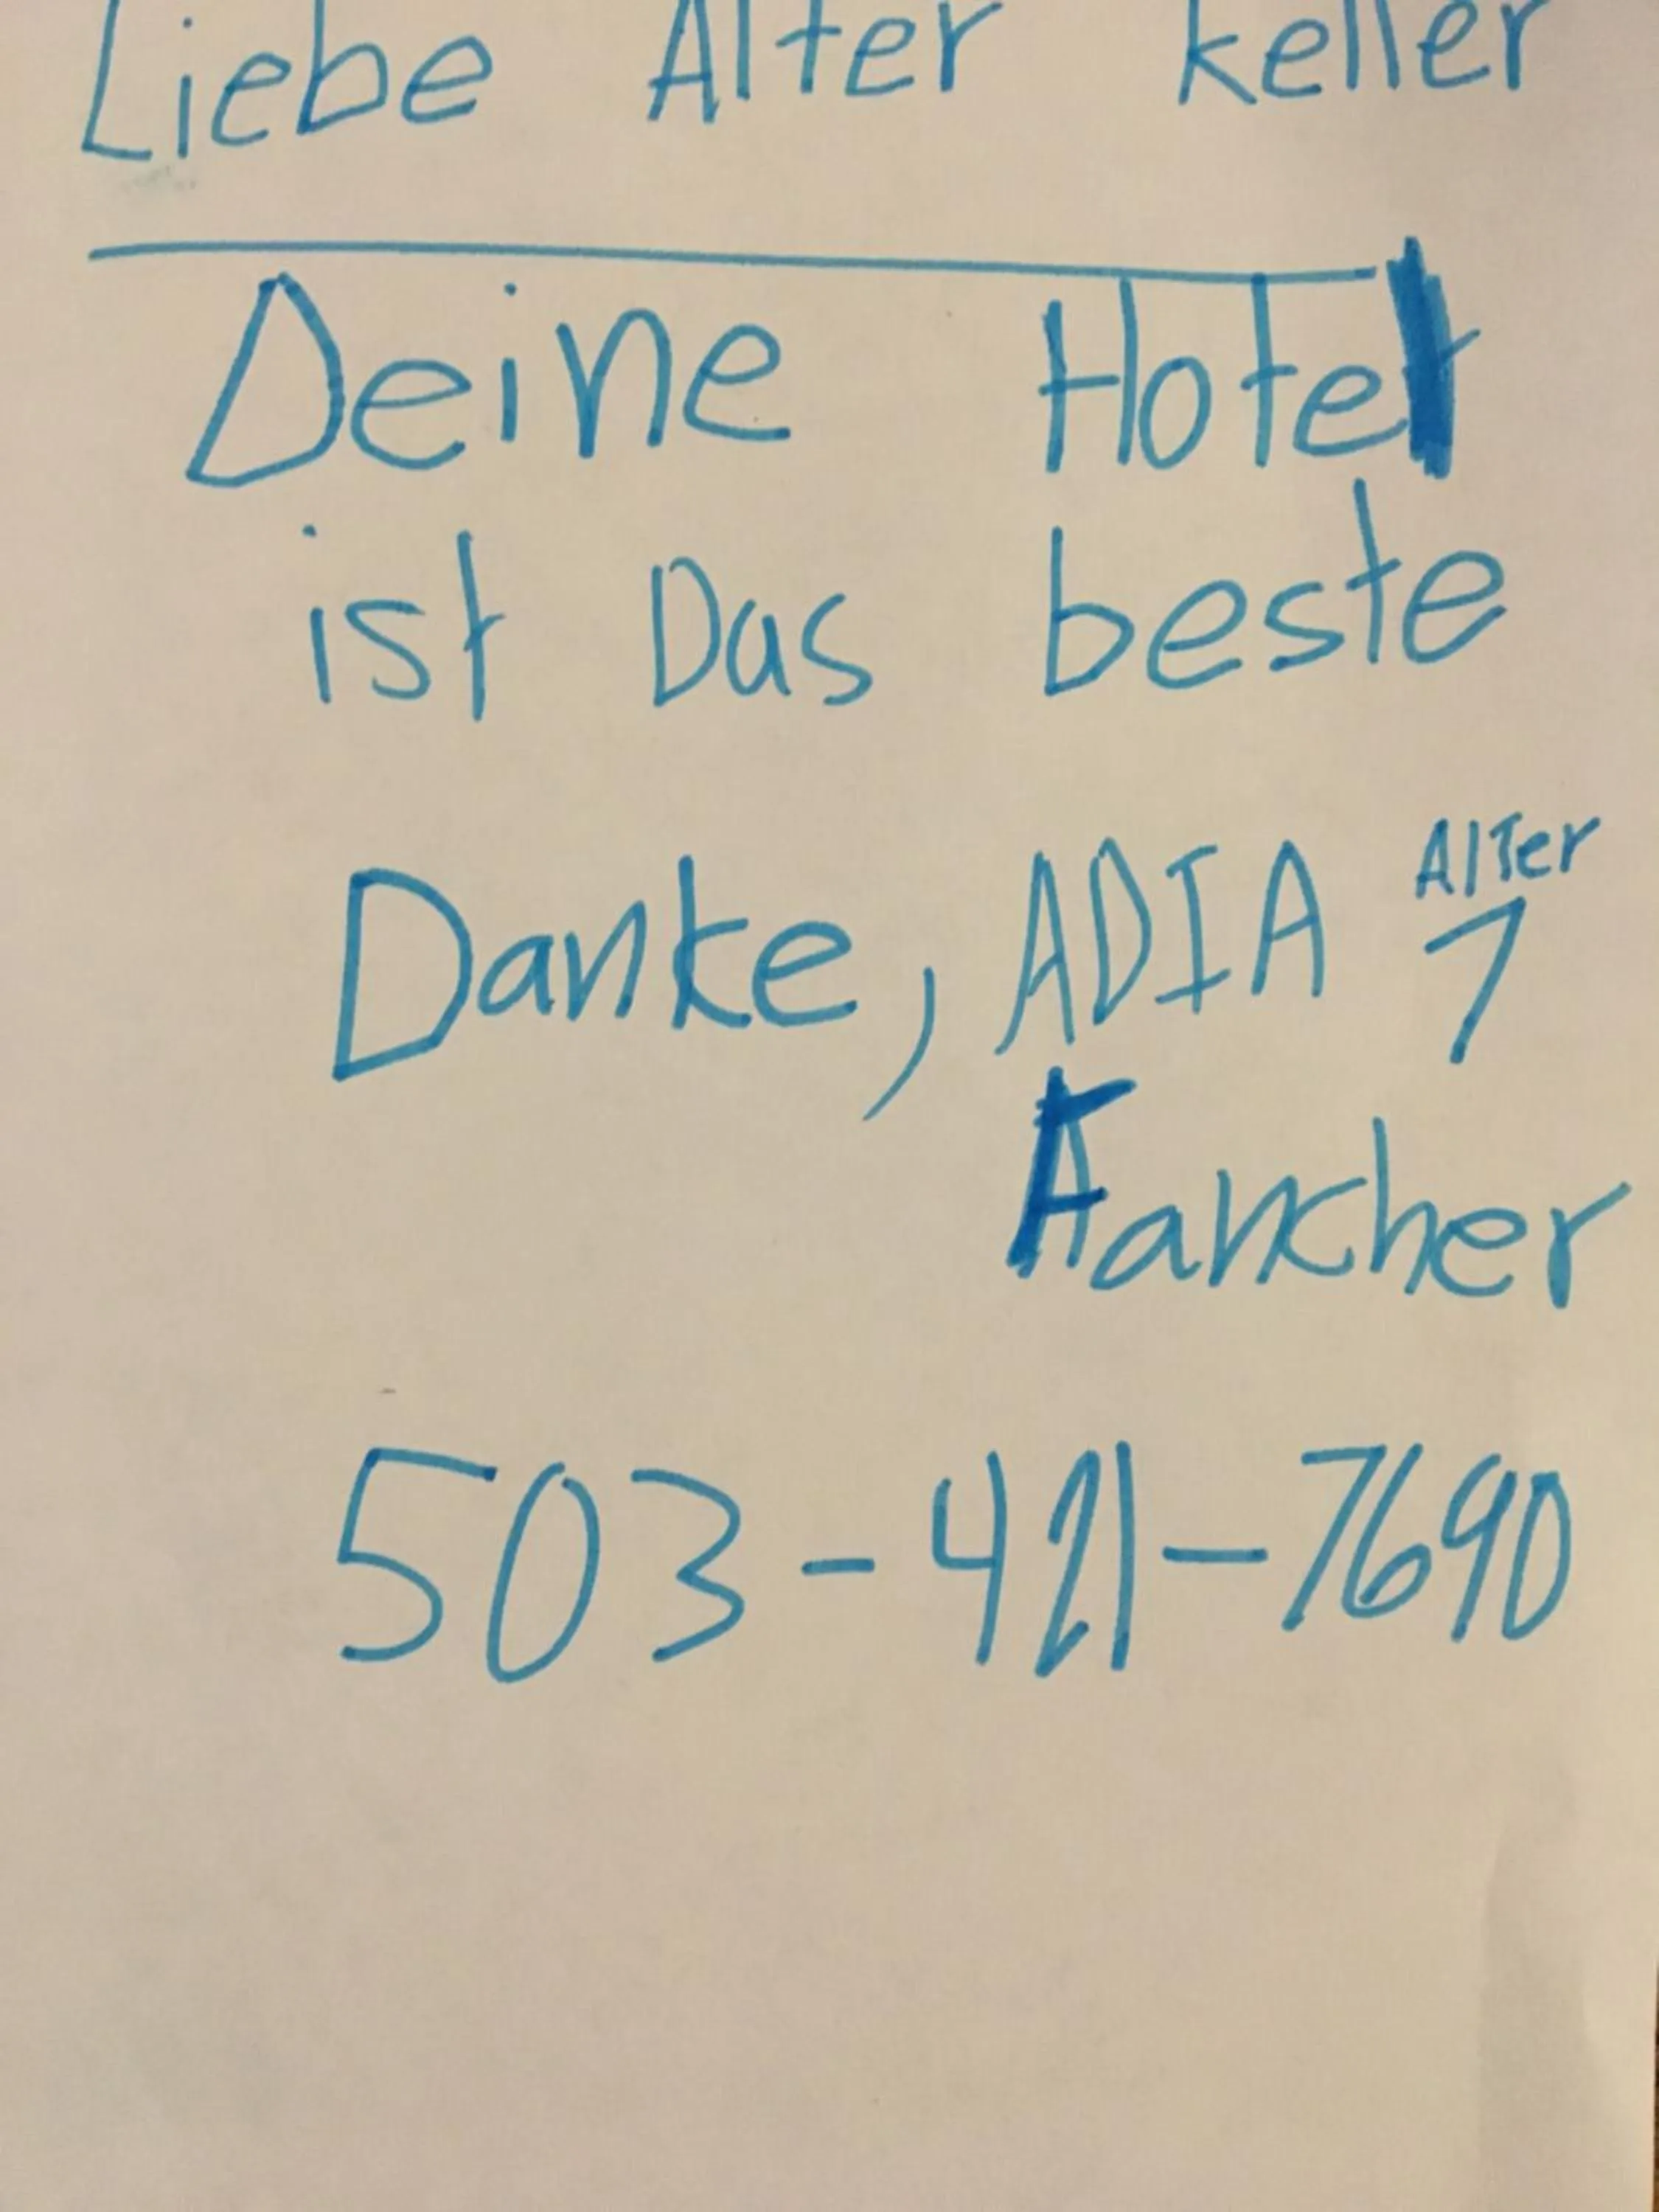 Liebe Alter Keller
Deine Hotel
ist Das beste
Alter
Danke, ADIA 7
Fancher
503-421-7690